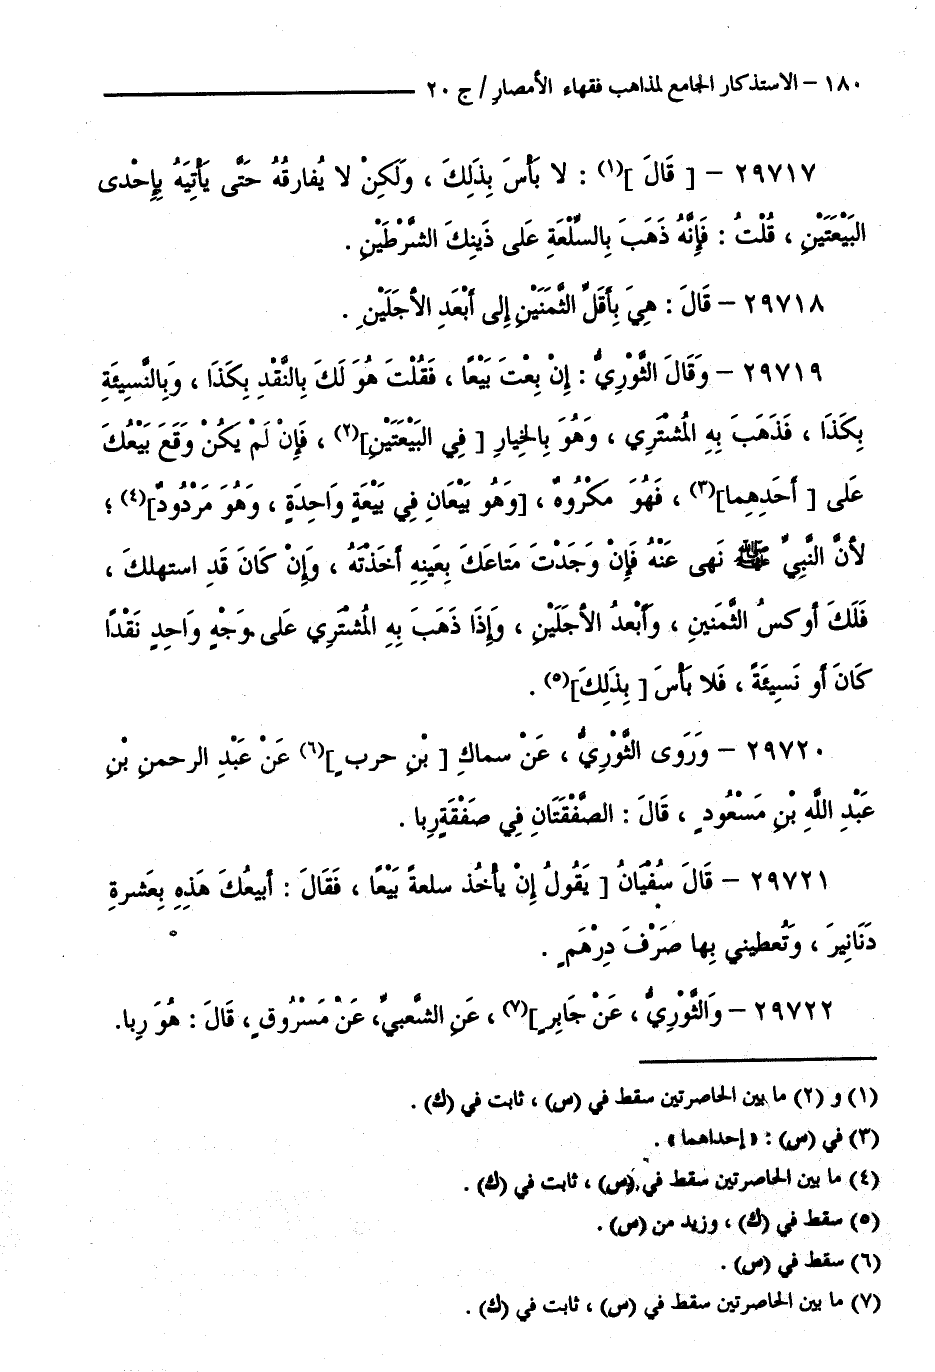 ١٨٠ – الاستذكار الجامع لمذاهب فقهاء الأمصار / ج ٢٠
٢٩٧١٧ – [ قَالَ ](١) : لا بَأْسَ بِذَلِكَ ، ولَكِنْ لا يُفارِقُهُ حَتَّى يَأْتِيَهُ بِإِحْدى
البَيْعَتَيْنِ ، قُلْتُ : فَإِنَّهُ ذَهَبَ بِالسِّلْعَةِ عَلى ذَينِكَ الشَّرْطَيْنِ .
٢٩٧١٨ – قَالَ : هِيَ بِأَقَلِّ الثَّمَنَيْنِ إِلى أَبْعَدِ الأَجَلَيْنِ .
٢٩٧١٩ – وَقَالَ الثَّوْرِيُّ : إِنْ بِعْتَ بَيْعًا ، فَقُلْتَ هُوَ لَكَ بِالنَّقْدِ بِكَذَا ، وَبِالنَّسِيئَةِ
بِكَذَا ، فَذَهَبَ بِهِ المُشْتَرِي ، وَهُوَ بِالخِيارِ [ فِي البَيْعَتَيْنِ](٢) ، فَإِنْ لَمْ يَكُنْ وَقَعَ بَيْعُكَ
عَلى [ أَحَدِهِما](٣) ، فَهُوَ مَكْرُوهٌ ، [وَهُو بَيْعَانِ فِي بَيْعَةٍ وَاحِدَةٍ ، وَهُوَ مَرْدُودٌ](٤) ؛
لأَنَّ النَّبِيَّ ﷺ نَهى عَنْهُ فَإِنْ وَجَدْتَ مَتَاعَكَ بِعَينِهِ أَخَذْتَهُ ، وَإِنْ كَانَ قَدِ استهلكَ ،
فَلَكَ أوكسُ الثَّمَنَينِ ، وَأَبْعَدُ الأجَلَيْنِ ، وَإِذَا ذَهَبَ بِهِ المُشْتَرِي عَلى وَجْهٍ وَاحِدٍ نَقْدًا
كَانَ أو نَسِيئَةً ، فَلا بَأْسَ [ بِذَلِكَ](٥) .
٢٩٧٢٠ – وَرَوى الثَّوْرِيُّ ، عَنْ سماكِ [ بْنِ حربٍ ](٦) عَنْ عَبْدِ الرحمنِ بْنِ
عَبْدِ اللَّهِ بْنِ مَسْعُودٍ ، قَالَ : الصَّفْقَتَانِ فِي صَفْقَةٍ رِبا .
٢٩٧٢١ – قَالَ سُفْيَانُ [ يَقُولُ إِنْ يأخُذ سلعةً بَيْعًا ، فَقَالَ : أبيعُكَ هَذِهِ بِعَشرةِ
دَنَانِيرَ ، وَتُعطيني بِها صَرْفَ دِرْهَمٍ .
٢٩٧٢٢ – وَالثَّوْرِيُّ ، عَنْ جَابِرٍ](٧) ، عَنِ الشَّعبيِّ، عَنْ مَسْرُوقٍ، قَالَ : هُوَ رِبا.
(١) و (٢) ما بين الحاصرتين سقط في (س) ، ثابت في (ك) .
(٣) في (س) : « إحداهما » .
(٤) ما بين الحاصرتين سقط في (س) ، ثابت في (ك) .
(٥) سقط في (ك) ، وزيد من (س) .
(٦) سقط في (س) .
(٧) ما بين الحاصرتين سقط في (س) ، ثابت في (ك) .